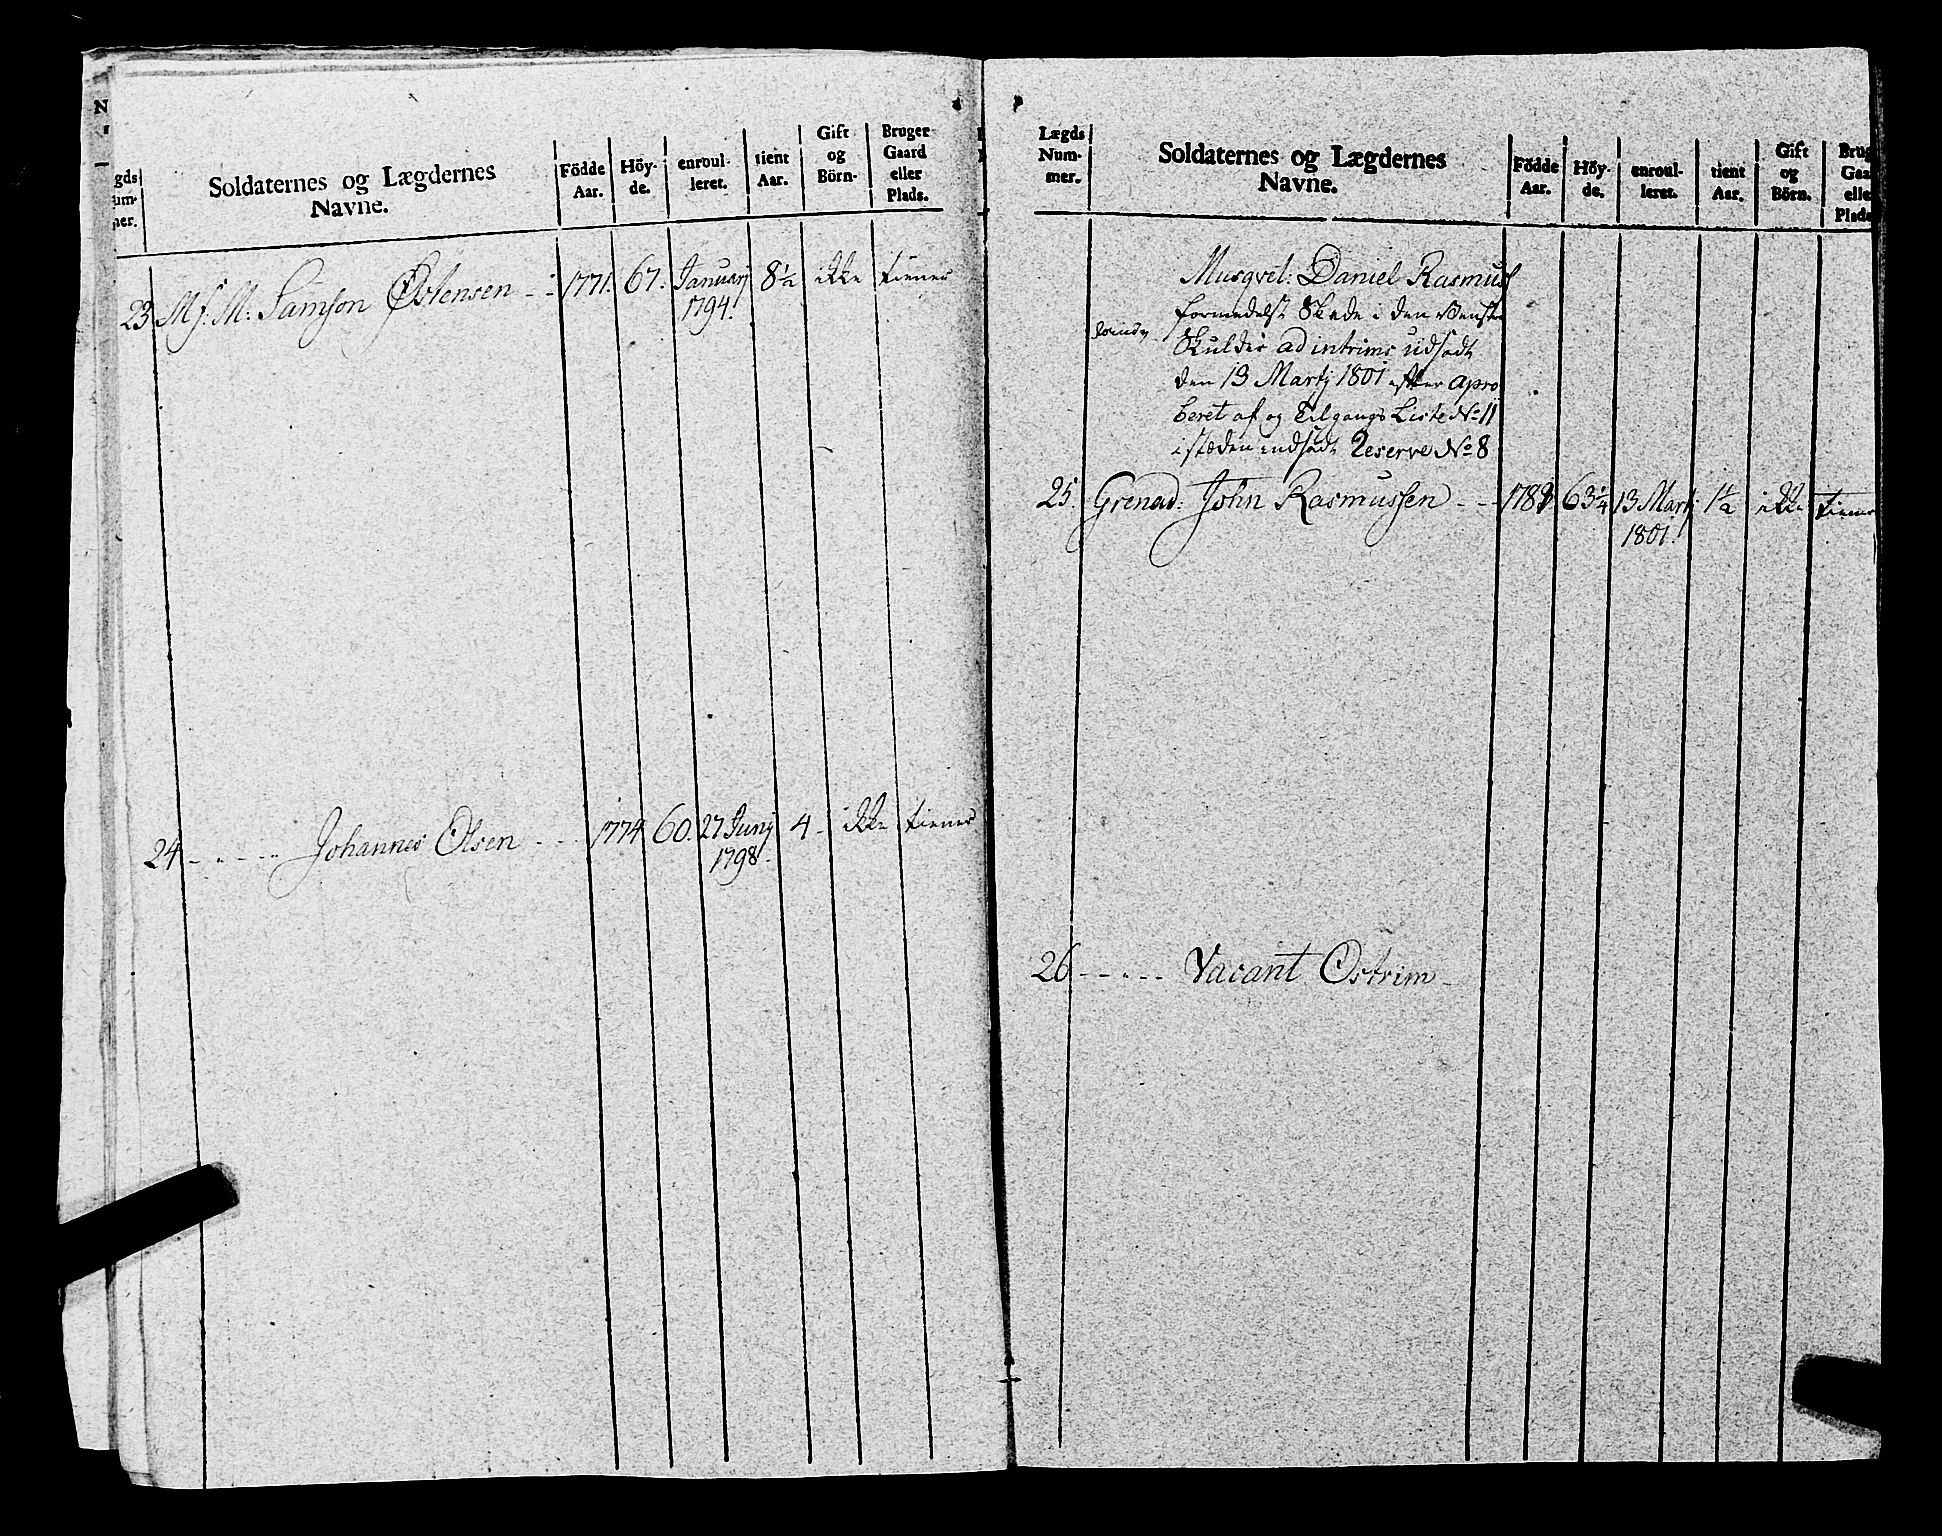 N
gds
um-
ner.
Soldaternes og Lægdernes
Navne.
Födde
Aar.
Höy-
de.
enroul-
leret.
tient
Aar.
Gift
og
Börn.
Bruger
Gaard
eller
Plads.
23 Ms. M: Samson Østensen - - 1771. 67. Januarj 8½ ikke tiener
1794.
24 - - - - Johannes Olsen - - - 1774 60. 27 Junj 4 - ikke tiener
1798.
Lægds
Num-
mer.
Soldaternes og Lægdernes
Navne.
Födde
Aar.
Höy-
de.
enroul-
leret.
tient
Aar.
Gift
og
Börn.
Brug
Gaa
elle
Plads
Musqvet: Daniel Rasmus
formedelst Skade i den Venstre
Skulder ad intrims udsadt
den 13 Martj 1801 efter apro
beret af og Tilgangs Liste No 11
i stæden indsadt Reserve No 8
25. Grenad: John Rasmussen - - 63¼ 13 Martj 1½ ikke tiener
1801.
26 - - - - - Vacant Ostrim -